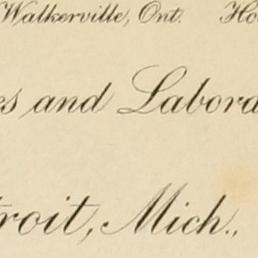 Walkerville, Ont. Ho
es and Labora
troit, Mich.,